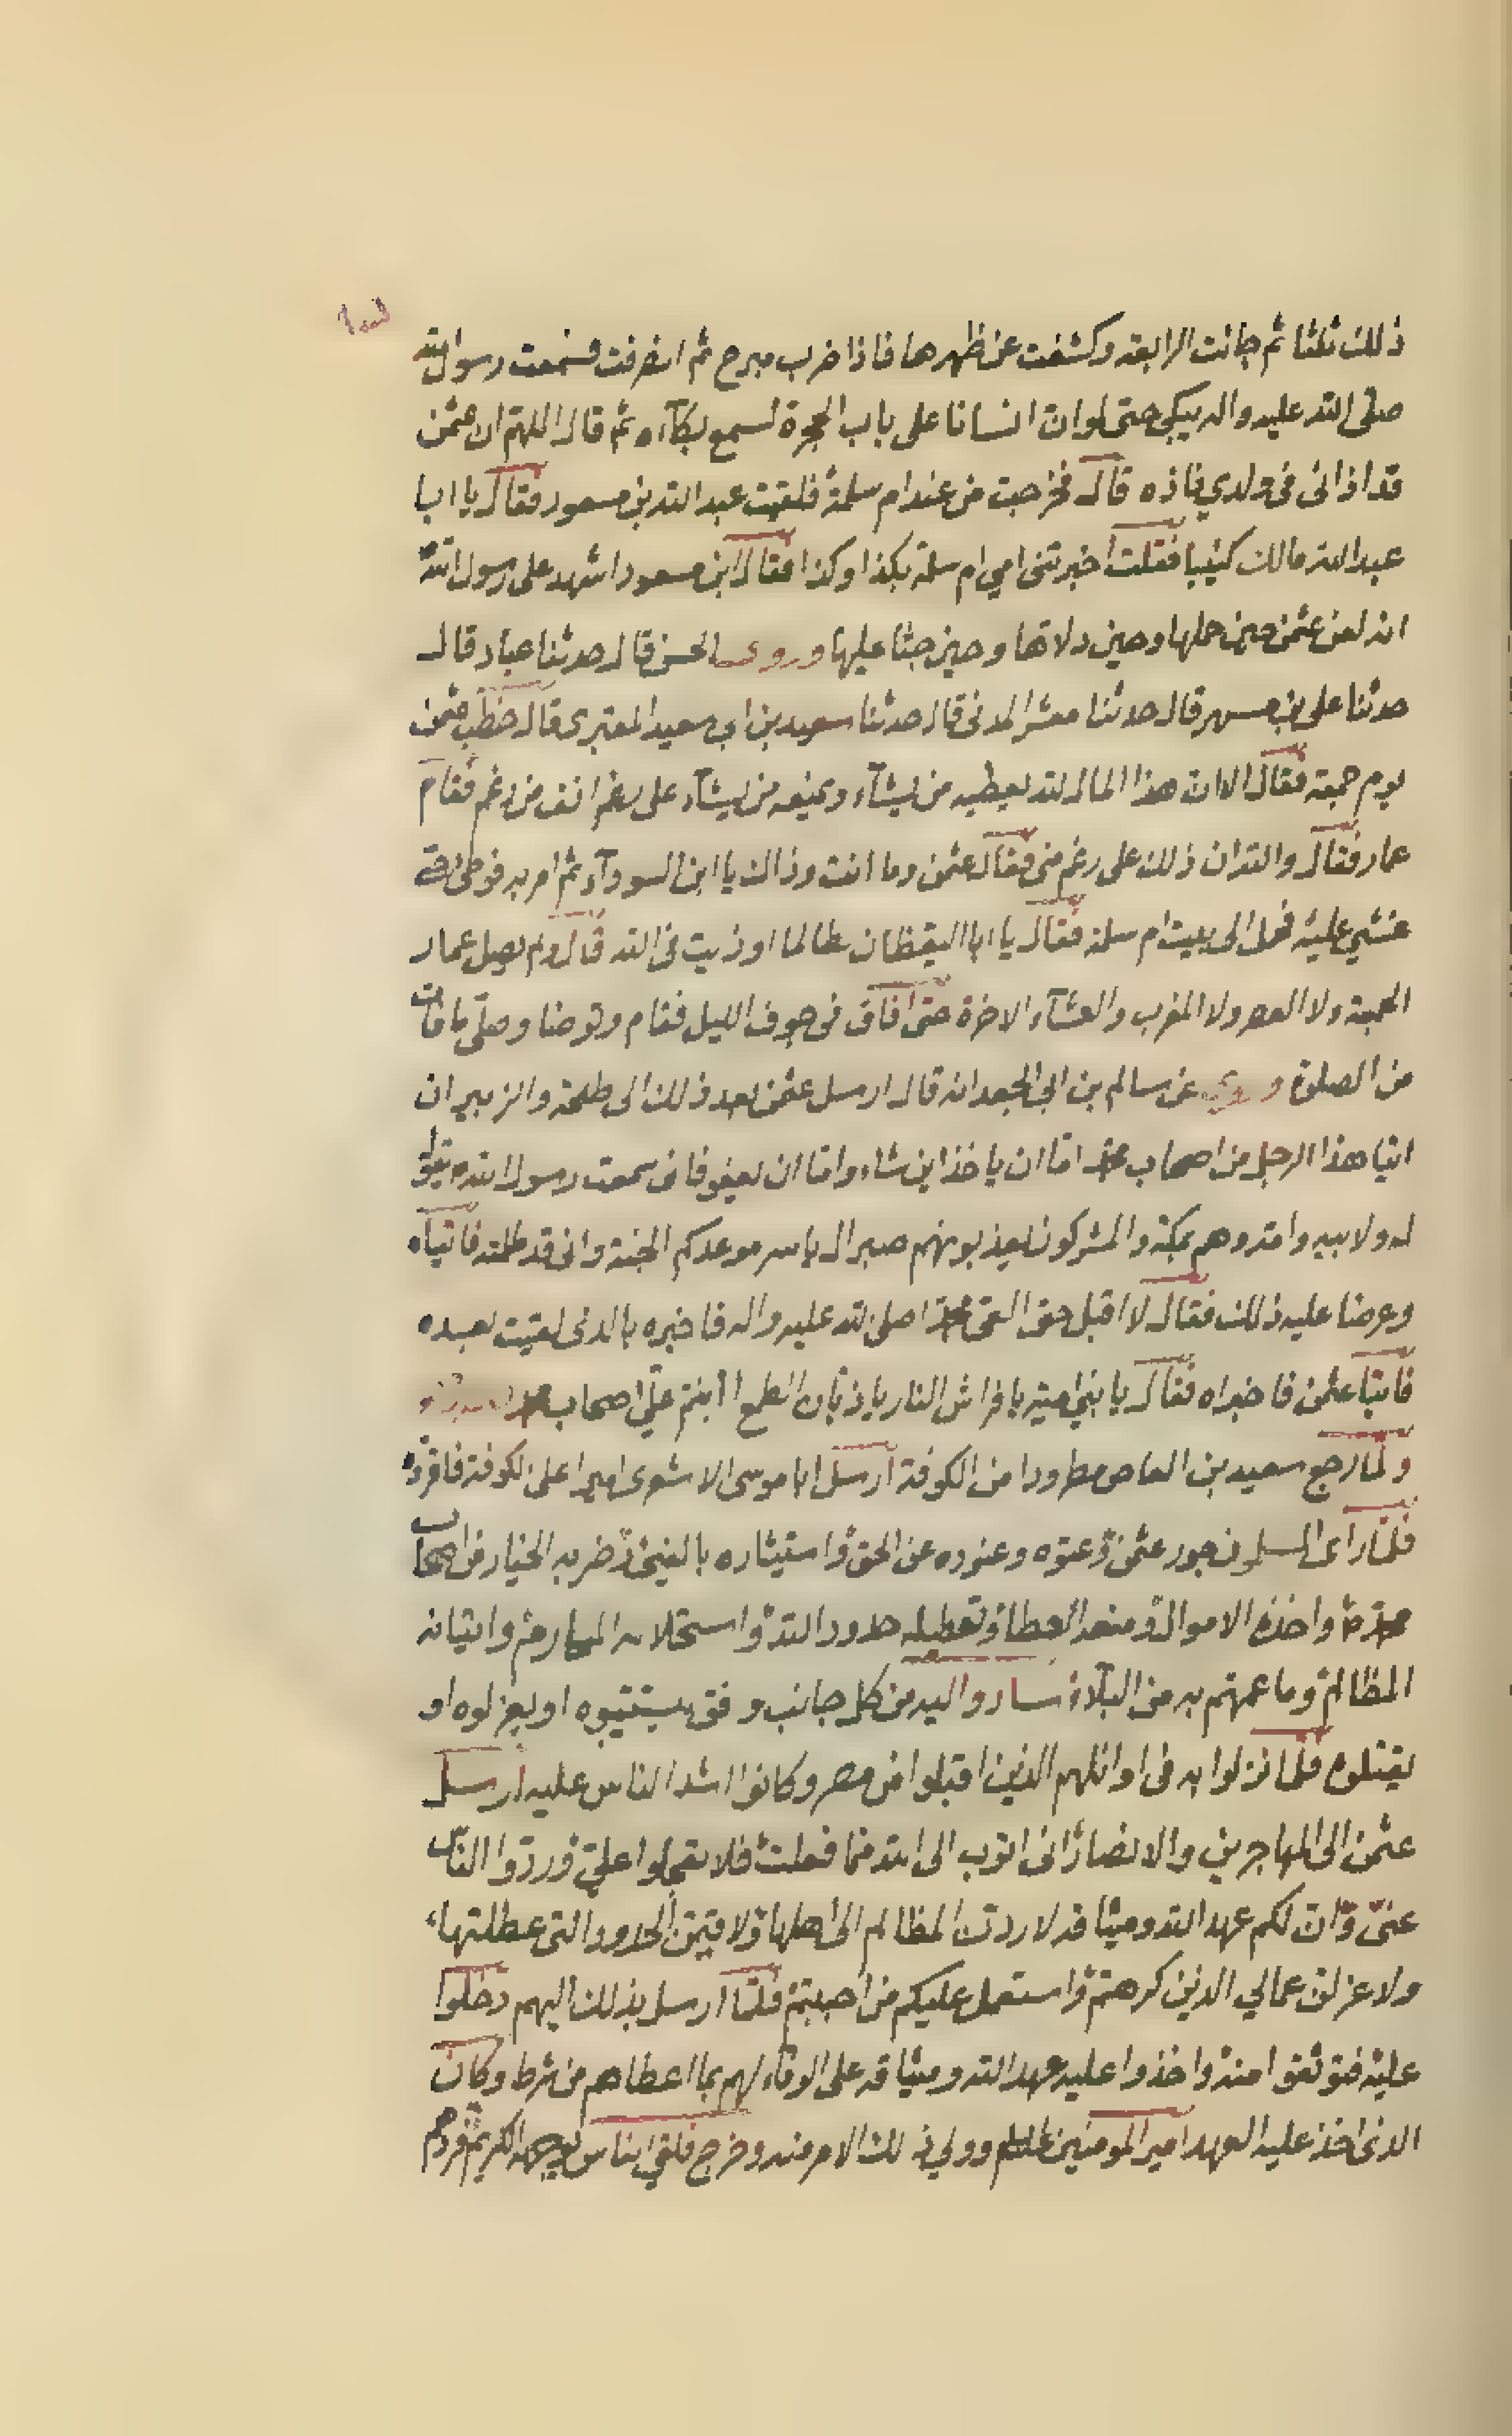 ذلك ثلثا ثم جائت الرابعة وكشفت عن ظهرها فاذا ضرب مبرح ثم انصرفت فسمعت رسول الله
صلى الله عليه واله يبكي حتى لو ان انسانا على باب الحجرة لسمع بكآءه ثم قال اللهم ان عثمن
قد اذانى فى ولدي فاذه قال فخرجت من عند ام سلمة فلقيت عبد الله بن مسعود فقال يا ابا
عبد الله مالك كئيبا فقلت اخبرتنى امي ام سلمة بكذا وكذا فقال ابن مسعود اشهد على رسول الله
انه لعن عثمن حين حملها وحين دلاها وحين جثا عليها وروى الحسن قال حدثنا عباد قال
حدثنا على بن مسهر قال حدثنا معشر المدنى قال حدثنا سعيد بن ابي سعيد المقبرى قال خطب عثمن
يوم جمعة فقال الا ان هذا المال لله يعطيه من يشآء ويمنعه من يشآء على رغم انف من رغم فقام
عمار فقال والله ان ذلك على رغم منى فقال عثمن وما انت وذاك يا ابن السودآء ثم امر به فوطئ حتى
غشي عليه فحمل الى بيت ام سلمة فقال يا ابا اليقظان طالما اوذيت فى الله قال ولم يصل عمار
الجمعة ولا العصر ولا المغرب والعشآء الاخرة حتى افاق فى جوف الليل فقام وتوضا وصلى ما فات
من الصلوة وروى عن سالم بن ابي الجعد انه قال ارسل عثمن بعد ذلك الى طلحة والزبير ان
ائتيا هذا الرجل من اصحاب محمد اما ان ياخذ اين شاء واما ان يعفو فانى سمعت رسول الله يقول
له ولابيه وامه وهم بمكة والمشركون يعذبونهم صبرا ال ياسر موعدكم الجنة وانى قد ظلمته فاتياه
وعرضا عليه ذلك فقال لا اقبل حتى القى محمدا صلى الله عليه واله فاخبره بالذى لقيت بعده
فاتيا عثمن فاخبراه فقال يا بني امية يا فراش النار يا ذبان الطمع االبتم علي اصحاب محمد
ولما رجع سعيد بن العاص مطرودا من الكوفة ارسل ابا موسى الاشعرى اميرا على الكوفة فاقروه
فلما راى المسلمون جور عثمن وعتوه وعنوده عن الحق واستيثاره بالفيئ وضربه الخيار من اصحاب
محمد واخذه الاموال ومنعه العطا وتعطيله حدود الله واستحلاله المحارم واتيانه
المظالم وما عمهم به من البلآء ساروا اليه من كل جانب وفق يستتيبوه او يعزلوه او
يقتلوه فلما نزلوا به فى اوائلهم الذين اقبلوا من مصر وكانوا اشد الناس عليه ارسل
عثمن الى المهاجرين والانصار انى اتوب الى الله مما فعلت فلا تعجلوا علي وردوا الناس
عنى وان لكم عهد الله وميثاقه لاردن المظالم الى اهلها ولاقيمن الحدود التى عطلتها
ولاعزلن عمالي الذين كرهتم واستعمل عليكم من احببتم فلما ارسل بذلك اليهم دخلوا
عليه فتوثقوا منه واخذوا عليه عهد الله وميثاقه على الوفاء لهم بما اعطاهم من شرط وكان
الذى اخذ عليه العهد امير المومنين وولي ذلك الامر منه وخرج فلقي الناس بوجهه الكريم فردهم